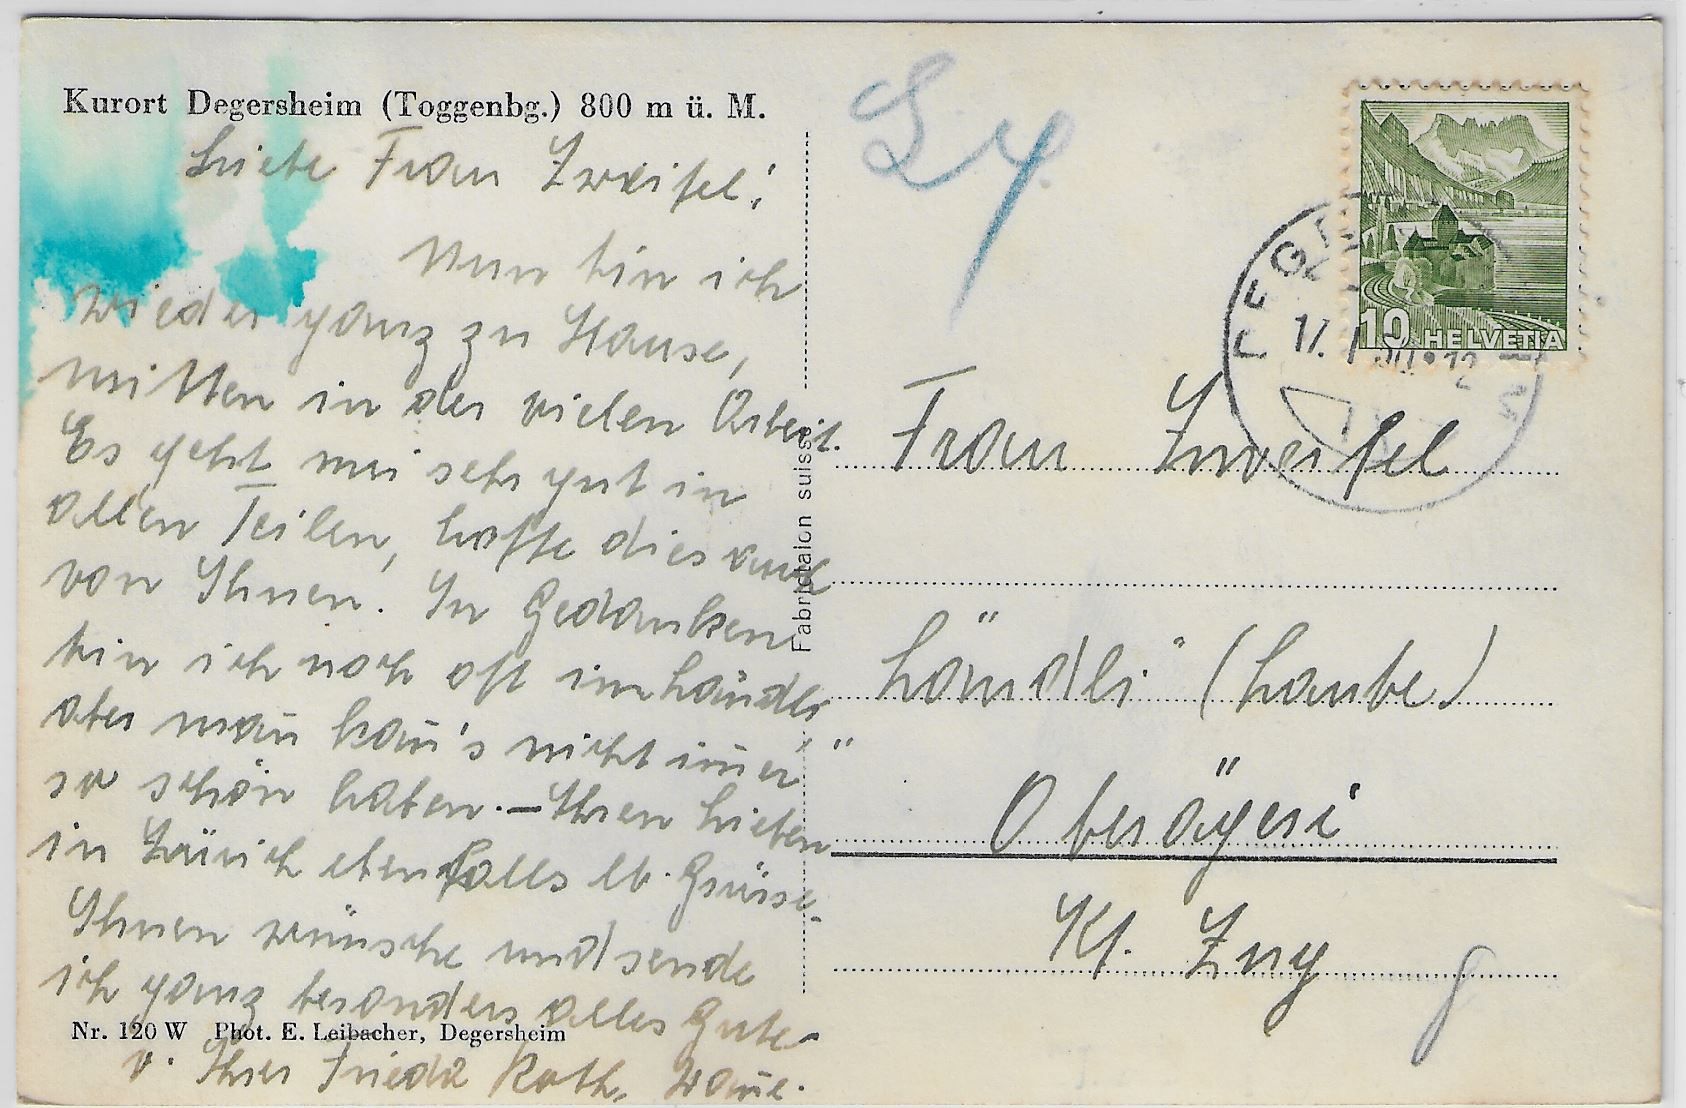 Kurort Degersheim (Toggenbg.) 800 m ü. M.
Liebe Frau Zweifel!
Nun bin ich
wieder ganz zu Hause,
mitten in der vielen Arbeit.
Es geht mir sehr gut in
allen Teilen, hoffe dies auch
von Ihnen. In Gedanken
bin ich noch oft im Ländli
aber man kan̄'s nicht im̄er
so schön haben. – Ihren Lieben
in Zürich ebenfalls lb. Grüsse.
Ihnen wünsche und sende
ich ganz besonders alles Gute
v. Ihrer Frieda Roth,
Nr. 120 W Phot. E. Leibacher, Degersheim
Fabrication suisse
HELVETIA
10
17.
Frau Zweifel
"Ländli" (Laube)
Oberägeri
Kt. Zug